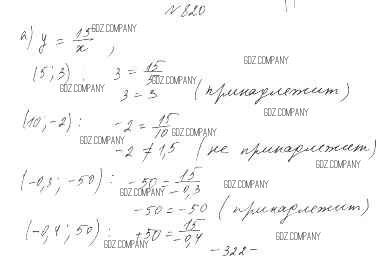 № 820
а) y = 15/x ,
(5; 3) : 3 = 15/5
3 = 3 (принадлежит)
(10; -2) : -2 = 15/10
-2 ≠ 1,5 (не принадлежит)
(-0,3; -50) : -50 = 15/-0,3
-50 = -50 (принадлежит)
(-0,4; 50) : +50 = 15/-0,4
-322-
GDZ.COMPANY
GDZ.COMPANY
GDZ.COMPANY
GDZ.COMPANY
GDZ.COMPANY
GDZ.COMPANY
GDZ.COMPANY
GDZ.COMPANY
GDZ.COMPANY
GDZ.COMPANY
GDZ.COMPANY
GDZ.COMPANY